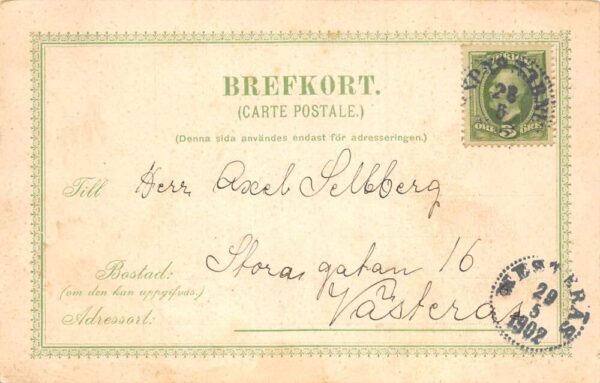 BREFKORT.
(CARTE POSTALE.)
(Denna sida användes endast för adresseringen.)
SVERIGE
28
5 ÖRE
Till Herr Axel Sellberg
Bostad: Stora gatan 16
(om den kan uppgifvas.)
Adressort: Västerås
WESTERÅS
29
5
1902